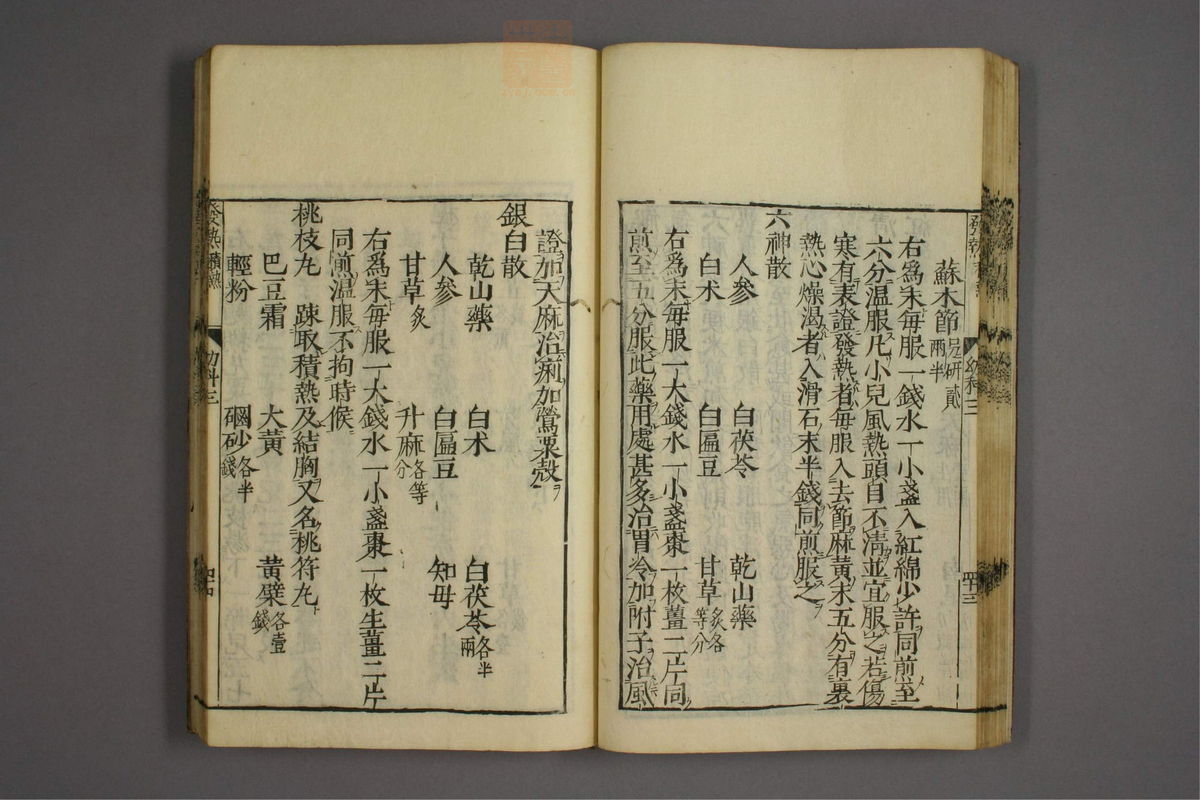 蘇木節 另研貳兩半
右爲末每服一錢水一小盞入紅綿少許同煎至
六分溫服凡小兒風熱頭目不清並宜服之若傷
寒有表證發熱者每服入去節麻黃末五分有裏
熱心燥渴者入滑石末半錢同煎服之
六神散
人參 白茯苓 乾山藥
白朮 白匾豆 甘草 炙各等分
右爲末每服一大錢水一小盞棗一枚薑二片同
煎至五分服此藥用處甚多治胃冷加附子治風
證加天麻治痢加罌粟殼
銀白散
乾山藥 白朮 白茯苓 各半兩
人參 白匾豆 知母
甘草 炙 升麻 各等分
右爲末每服一大錢水一小盞棗一枚生薑二片
同煎溫服不拘時候
桃枝丸 踈取積熱及結胸又名桃符丸
巴豆霜 大黃 黃檗 各壹錢
輕粉 硇砂 各半錢
幼科三